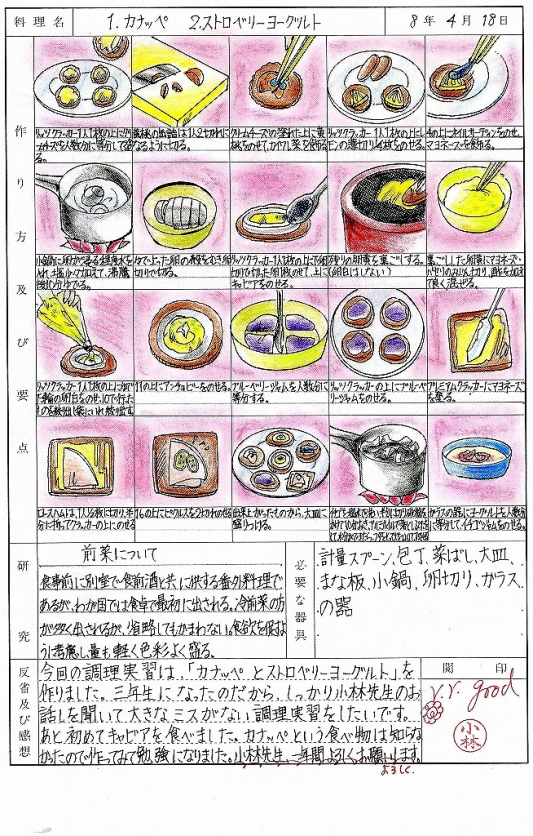 料理名
1. カナッペ 2.ストロベリーヨーグルト
8年 4月 18日
作り方及び要点
リッツクラッカー1人1枚の上に
る。
なるように切る。
クリームチーズの塗れた上に黄
桃をのせて、カイワレ菜を飾る
リッツクラッカー1人1枚の上にレ
モンの薄切り1/4枚をのせる。
4の上にオイルサーディンをのせ、
マヨネーズを飾る。
切りで切る。
キャビアをのせる。
残りの卵黄を裏ごしする。
(卵白はしない)
裏ごしした卵黄にマヨネーズ・
て良く混ぜる。
11の上にアンチョビーをのせる。
ブルーベリージャムを人数分に
等分する。
リッツクラッカーの上にブルーベ
リージャムをのせる。
プレミアムクラッカーにマヨネーズ
を塗る。
ロースハムは、1人1/2枚に切り、半
分に折ってクラッカーの上にのせる
16の上にピクルスを2切れのせる
出来上がったものから、大皿に
盛りつける。
ガラスの器にヨーグルトを人数分
に等分して、イチゴジャムをのせる。
研究
前菜について
食事前に別室で食前酒と共に供する番外料理で
あるが、わが国では食卓で最初に出される。冷前菜の方
が多く出されるが、省略してもかまわない。食欲を促すよ
うに考慮し量も軽く色彩よく盛る。
必要な器具
計量スプーン、包丁、菜ばし、大皿、
まな板、小鍋、卵切り、ガラス
の器
反省及び感想
今回の調理実習は、「カナッペとストロベリーヨーグルト」を
作りました。三年生になったのだから、しっかり小林先生のお
話しを聞いて大きなミスがない調理実習をしたいです。
あと初めてキャビアを食べました。カナッペという食べ物は知らな
かったので作ってみて勉強になりました。小林先生、一年間よろしくお願いします。
よろしく
閲印
v.v. good
小林